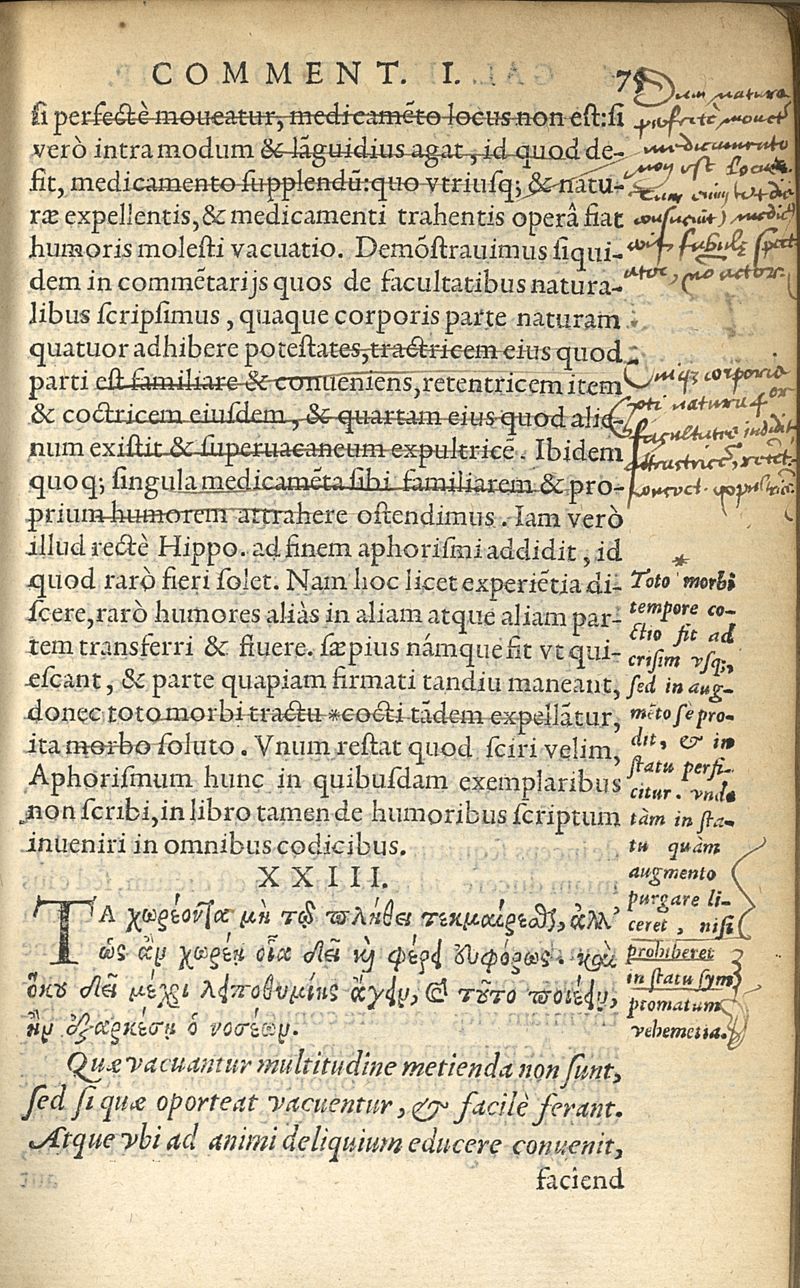 COMMENT. I. 75
si perfectè moueatur, medicamẽto locus non est: si
verò intra modum & lãguidius agat, id quod de-
sit, medicamento supplendũ: quo vtriusq; & natu-
ræ expellentis, & medicamenti trahentis operâ fiat
humoris molesti vacuatio. Demõstrauimus siqui-
dem in commẽtarijs quos de facultatibus natura-
libus scripsimus, quaque corporis parte naturam
quatuor adhibere potestates, tractricem eius quod
parti est familiare & conueniens, retentricem item
& coctricem eiusdem, & quartam eius quod alie-
num existit & superuacaneum expultricẽ. Ibidem
quoq; singula medicamẽta sibi familiarem & pro-
prium humorem attrahere ostendimus. Iam verò
illud rectè Hippo. ad finem aphorismi addidit, id
quod rarò fieri solet. Nam hoc licet experiẽtia di-
scere, rarò humores aliàs in aliam atque aliam par-
tem transferri & fluere. sæpius námque fit vt qui-
escant, & parte quapiam firmati tandiu maneant,
donec toto morbi tractu *cocti tãdem expellãtur,
ita morbo soluto. Vnum restat quod sciri velim,
Aphorismum hunc in quibusdam exemplaribus
non scribi, in libro tamen de humoribus scriptum
inueniri in omnibus codicibus.
XXIII.
ΤΑ χωρέοντα μὴ τῷ πλήθει τεκμαίρεσθαι, ἀλλ'
ὡς ἂν χωρέῃ οἷα δεῖ καὶ φέρῃ εὐφόρως. καὶ
ὅκου δεῖ μέχρι λειποθυμίης ἄγειν, καὶ τοῦτο ποιέειν,
ἢν ἐξαρκέσῃ ὁ νοσέων.
Quæ vacuantur multitudine metienda non sunt,
sed si quæ oporteat vacuentur, & facilè ferant.
Atque vbi ad animi deliquium educere conuenit,
faciend
Dum natura
perfectè mouet
medicamento
non est locus.
*
Toto morbi
tempore co-
ctio fit ad
crisim vsq;,
sed in aug-
mẽto se pro-
dit, & in
statu perfi-
citur. vnde
tàm in sta-
tu quàm
augmento
purgare li-
ceret, nisi
prohiberet
in statu sym
ptomatum
vehemẽtia.